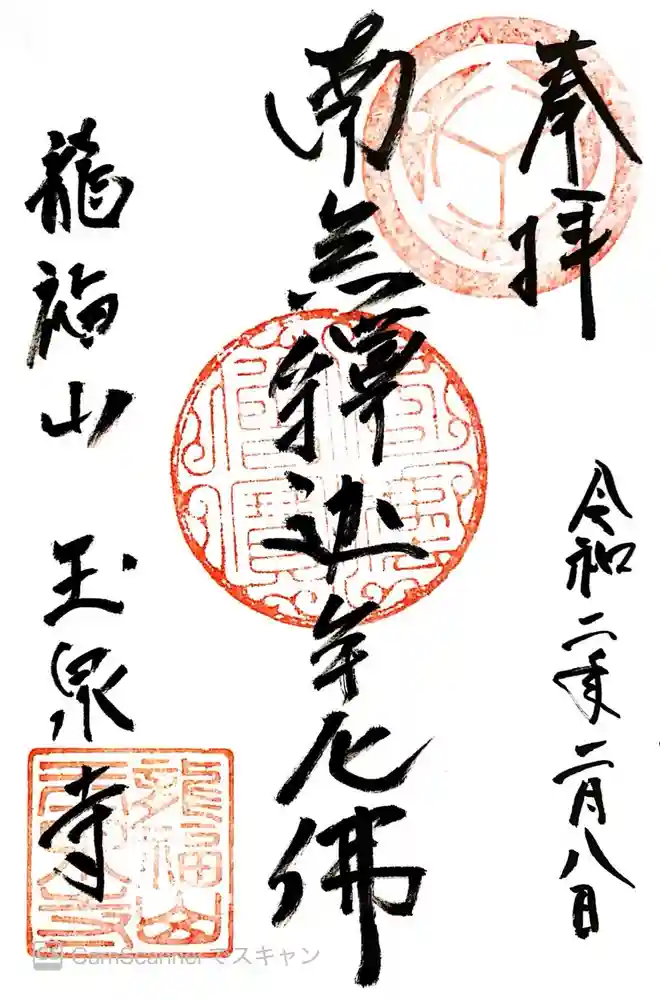 奉拝
令和二年二月八日
南無釋迦牟尼佛
龍福山 玉泉寺
龍福山
玉泉寺
CamScanner でスキャン